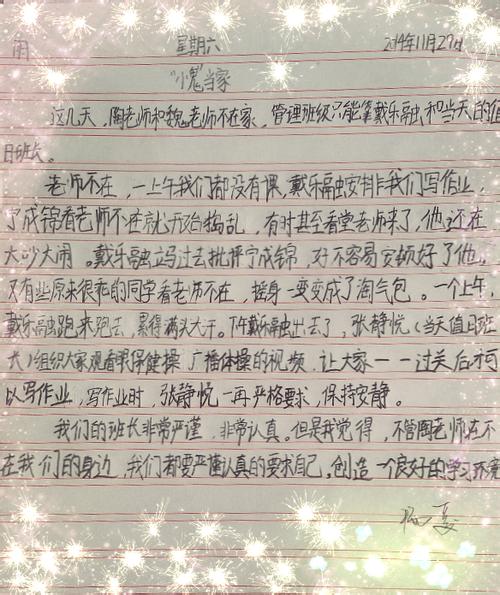 雨 星期六 2014年11月29日
“小鬼当家
这几天，陶老师和魏老师不在家，管理班级只能靠戴乐融和当天的值
日班长。
老师不在，一上午我们都没有课，戴乐融安排我们写作业，
丁成锦看老师不在就开始捣乱，有时甚至看堂老师来了，他还在
大吵大闹。戴乐融立马过去批评宁成锦，好不容易安顿好了他，
又有些原来很乖的同学看老师不在，摇身一变变成了淘气包。一个上午，
戴乐融跑来跑去，累得满头大汗。下午戴乐融出去了，张静悦（当天值日班
长）组织大家观看眼保健操广播体操的视频，让大家一一过关后才可
以写作业，写作业时，张静悦一再严格要求，保持安静。
我们的班长非常严谨，非常认真。但是我觉得，不管陶老师在不
在我们的身边，我们都要严谨认真的要求自己，创造一个良好的学习环境